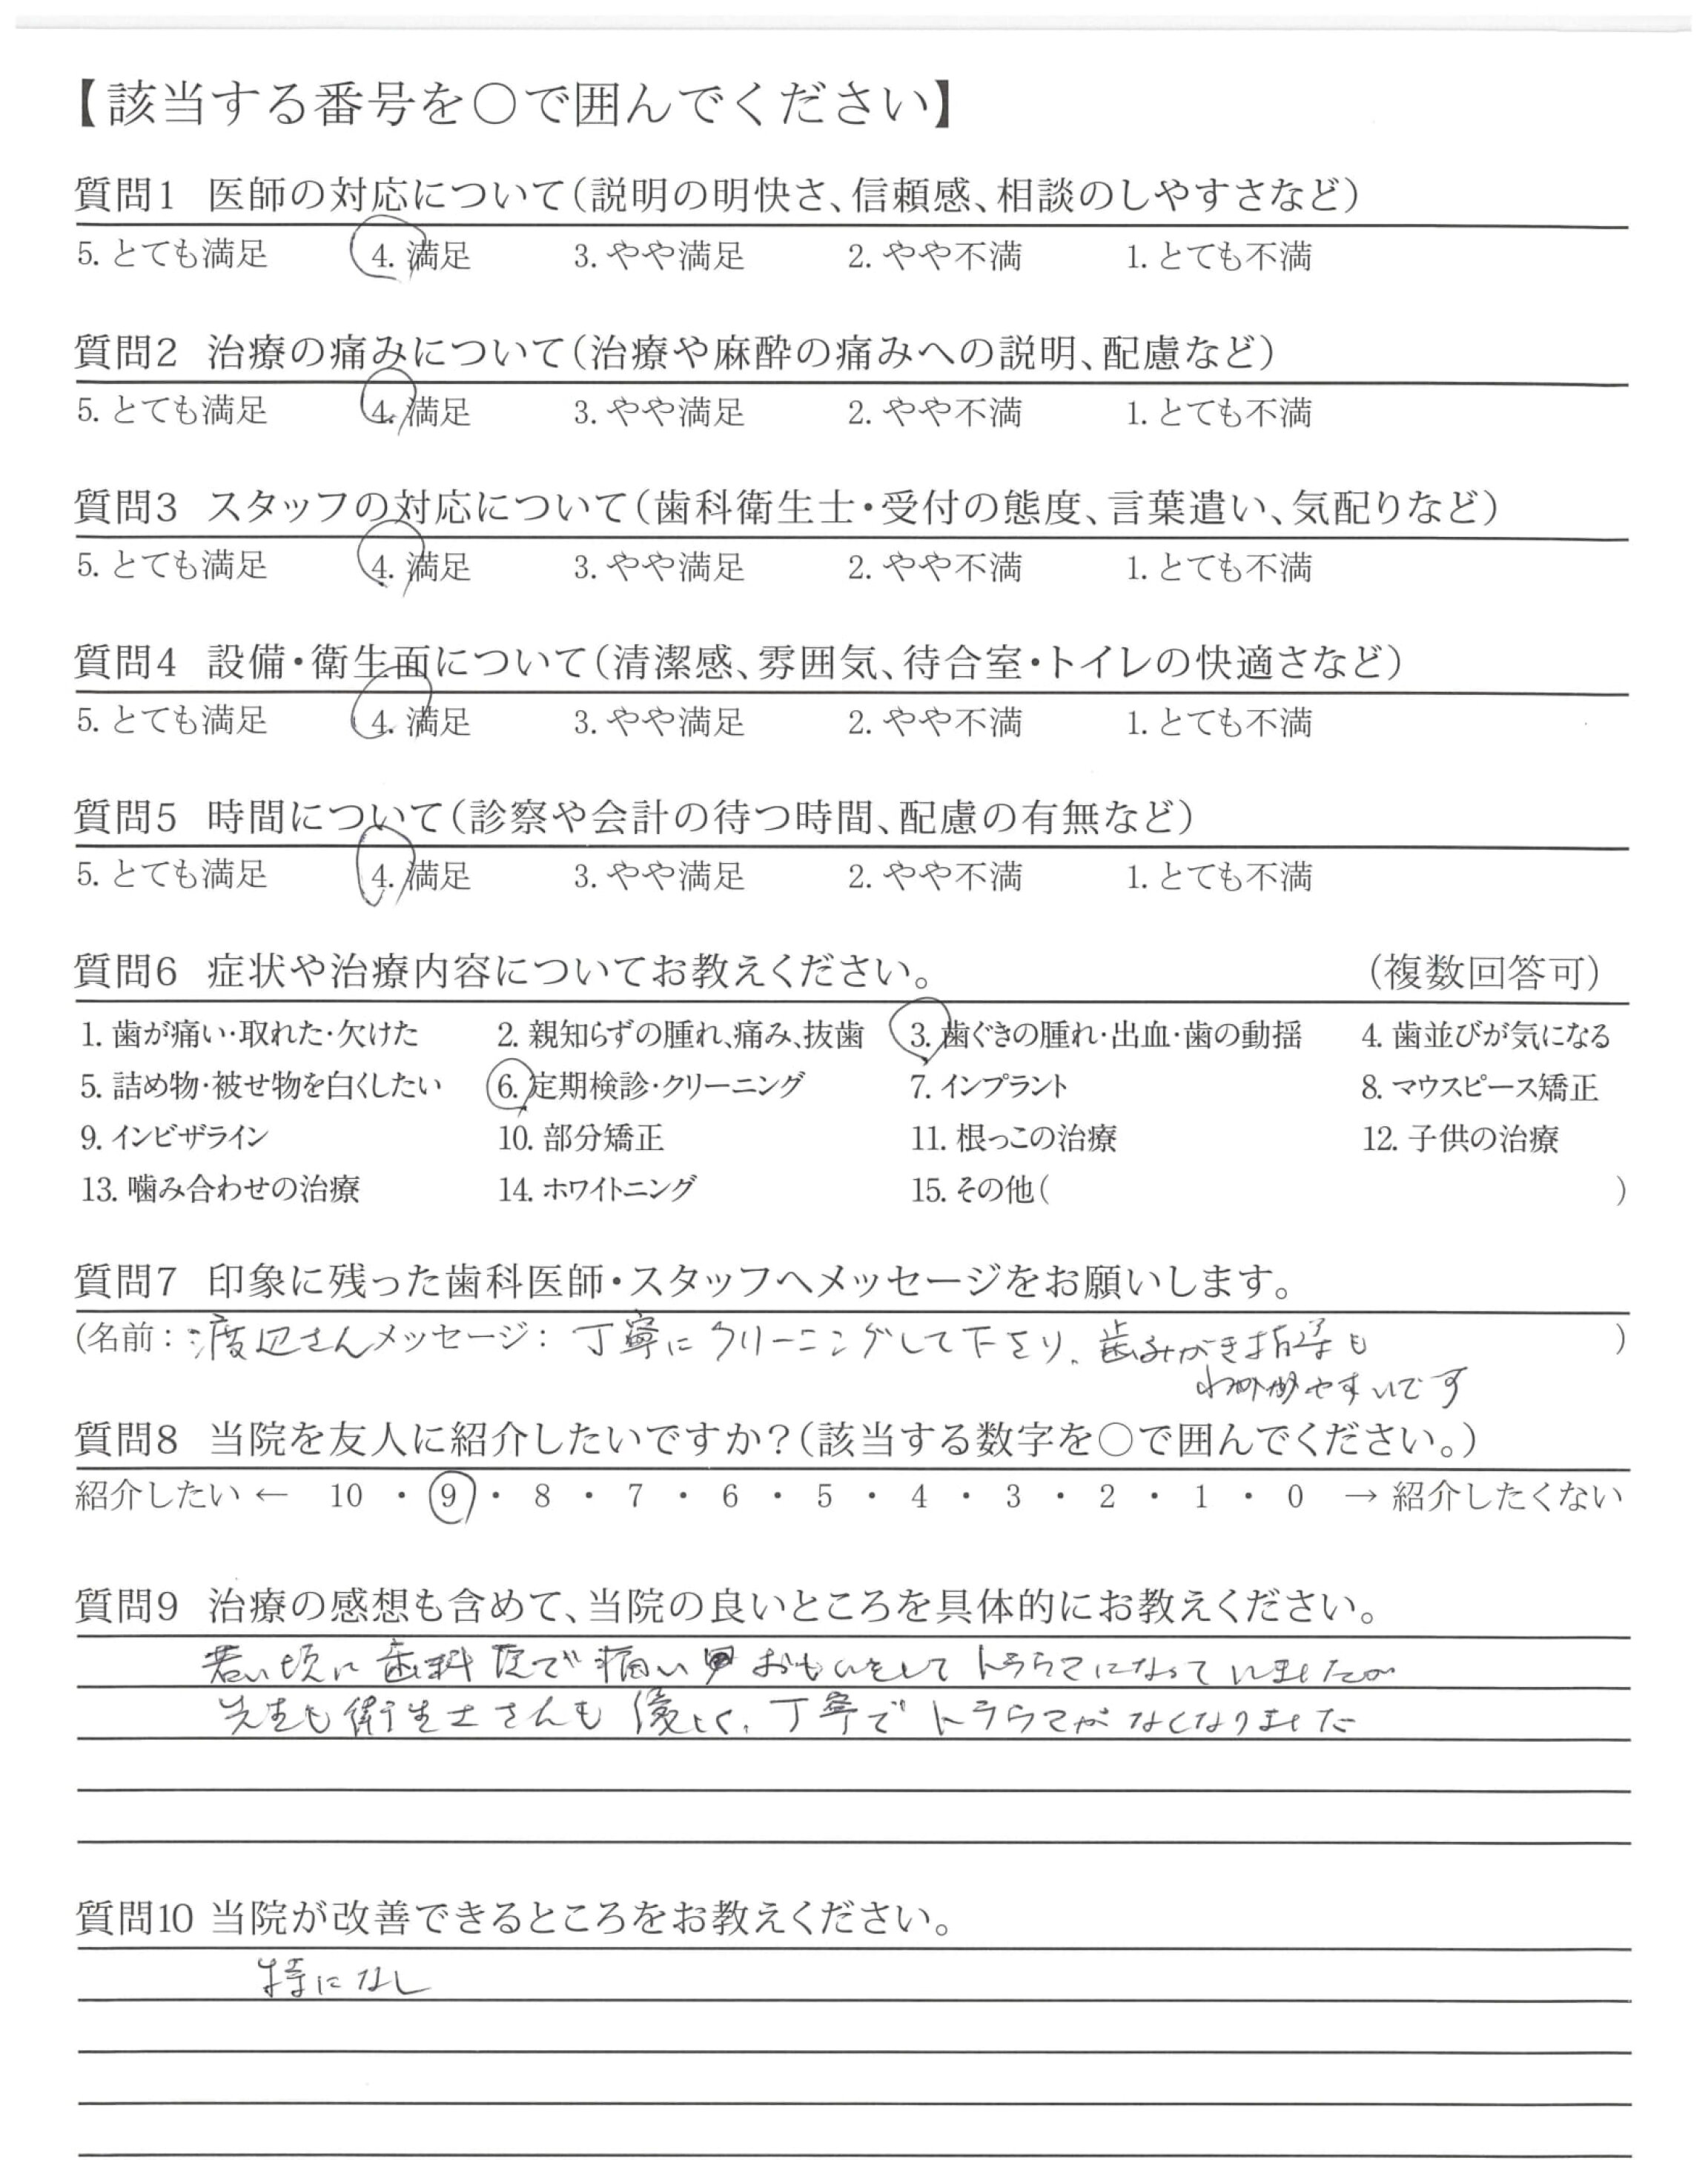 【該当する番号を○で囲んでください】
質問1 医師の対応について(説明の明快さ、信頼感、相談のしやすさなど)
5. とても満足 4. 満足 3. やや満足 2. やや不満 1. とても不満
質問2 治療の痛みについて(治療や麻酔の痛みへの説明、配慮など)
5. とても満足 4. 満足 3. やや満足 2. やや不満 1. とても不満
質問3 スタッフの対応について(歯科衛生士・受付の態度、言葉遣い、気配りなど)
5. とても満足 4. 満足 3. やや満足 2. やや不満 1. とても不満
質問4 設備・衛生面について(清潔感、雰囲気、待合室・トイレの快適さなど)
5. とても満足 4. 満足 3. やや満足 2. やや不満 1. とても不満
質問5 時間について(診察や会計の待つ時間、配慮の有無など)
5. とても満足 4. 満足 3. やや満足 2. やや不満 1. とても不満
質問6 症状や治療内容についてお教えください。 (複数回答可)
1. 歯が痛い・取れた・欠けた 2. 親知らずの腫れ、痛み、抜歯 3. 歯ぐきの腫れ・出血・歯の動揺 4. 歯並びが気になる
5. 詰め物・被せ物を白くしたい 6. 定期検診・クリーニング 7. インプラント 8. マウスピース矯正
9. インビザライン 10. 部分矯正 11. 根っこの治療 12. 子供の治療
13. 噛み合わせの治療 14. ホワイトニング 15. その他( )
質問7 印象に残った歯科医師・スタッフへメッセージをお願いします。
(名前: 渡辺さん メッセージ: 丁寧にクリーニングして下さり、歯みがき指導も )
わかりやすいです
質問8 当院を友人に紹介したいですか?(該当する数字を○で囲んでください。)
紹介したい ← 10 ・ 9 ・ 8 ・ 7 ・ 6 ・ 5 ・ 4 ・ 3 ・ 2 ・ 1 ・ 0 → 紹介したくない
質問9 治療の感想も含めて、当院の良いところを具体的にお教えください。
若い頃に歯科医で痛いおもいをしてトラウマになっていましたが
先生も衛生士さんも優しく、丁寧でトラウマがなくなりました
質問10 当院が改善できるところをお教えください。
特になし